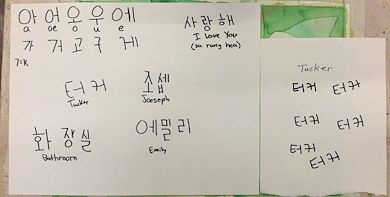 아 어 옹 우 에
a oe o u e
가 거 고 구 게
7=K
사랑해
I love You
(sa rang hea)
터커
Tucker
조셉
Joeseph
화장실
Bathroom
에밀리
Emily
Tucker
터커 터커
터커 터커
터커
터커